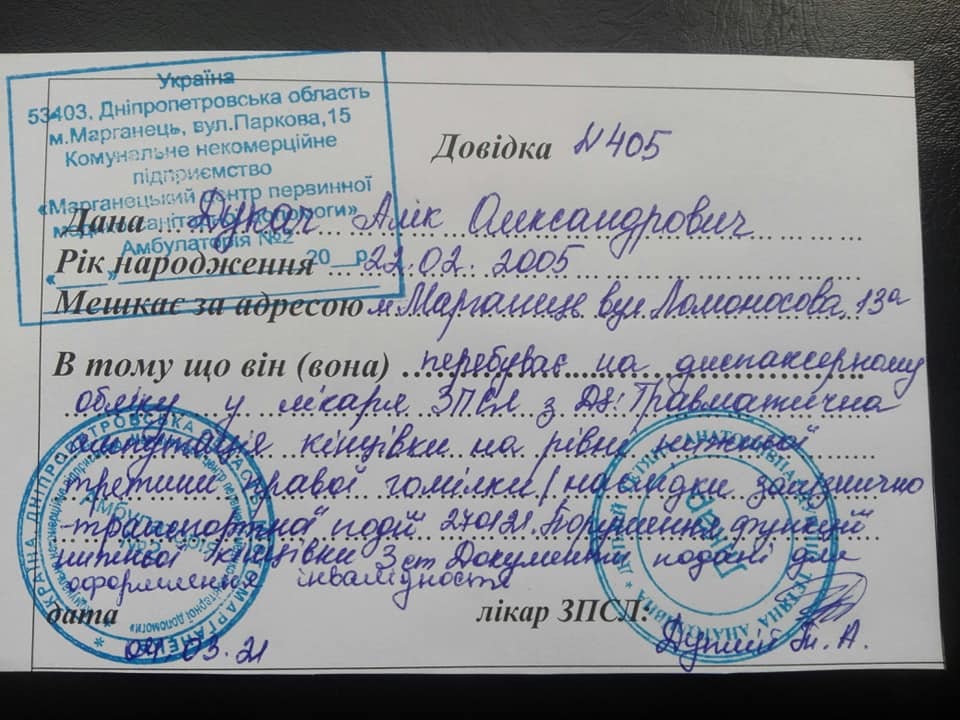 Україна
53403, Дніпропетровська область
м.Марганець, вул.Паркова,15
Комунальне некомерційне
підприємство
«Марганецький центр первинної
медико-санітарної допомоги»
Амбулаторія №2
«___»__________ 20__р.
Довідка №405
Дана Алік Олександрович
Рік народження 22.02.2005
Мешкає за адресою м.Марганець вул Ломоносова, 13а
В тому що він (вона) перебуває на диспансерному
обліку у лікаря ЗПСЛ з Дз: Травматична
ампутація кінцівки на рівні нижньої
третини правої гомілки /наслідки залізнично
транспортної події 270121. Порушення функції
кінцівки 3 ст Документи подані для
оформлення інвалідності
дата лікар ЗПСЛ:
04.03.21 Т. А.